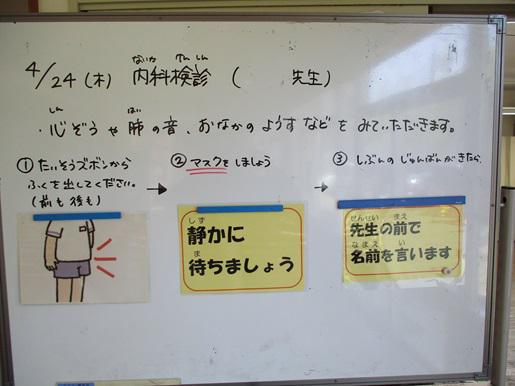 4/24(木) 内科検診 ( 先生)
・心ぞうや肺の音、おなかのようすなどをみていただきます。
① たいそうズボンから
ふくを出してください。
(前も後も)
→
② マスクをしましょう
静かに
待ちましょう
→
③ じぶんのじゅんばんがきたら、
先生の前で
名前を言います